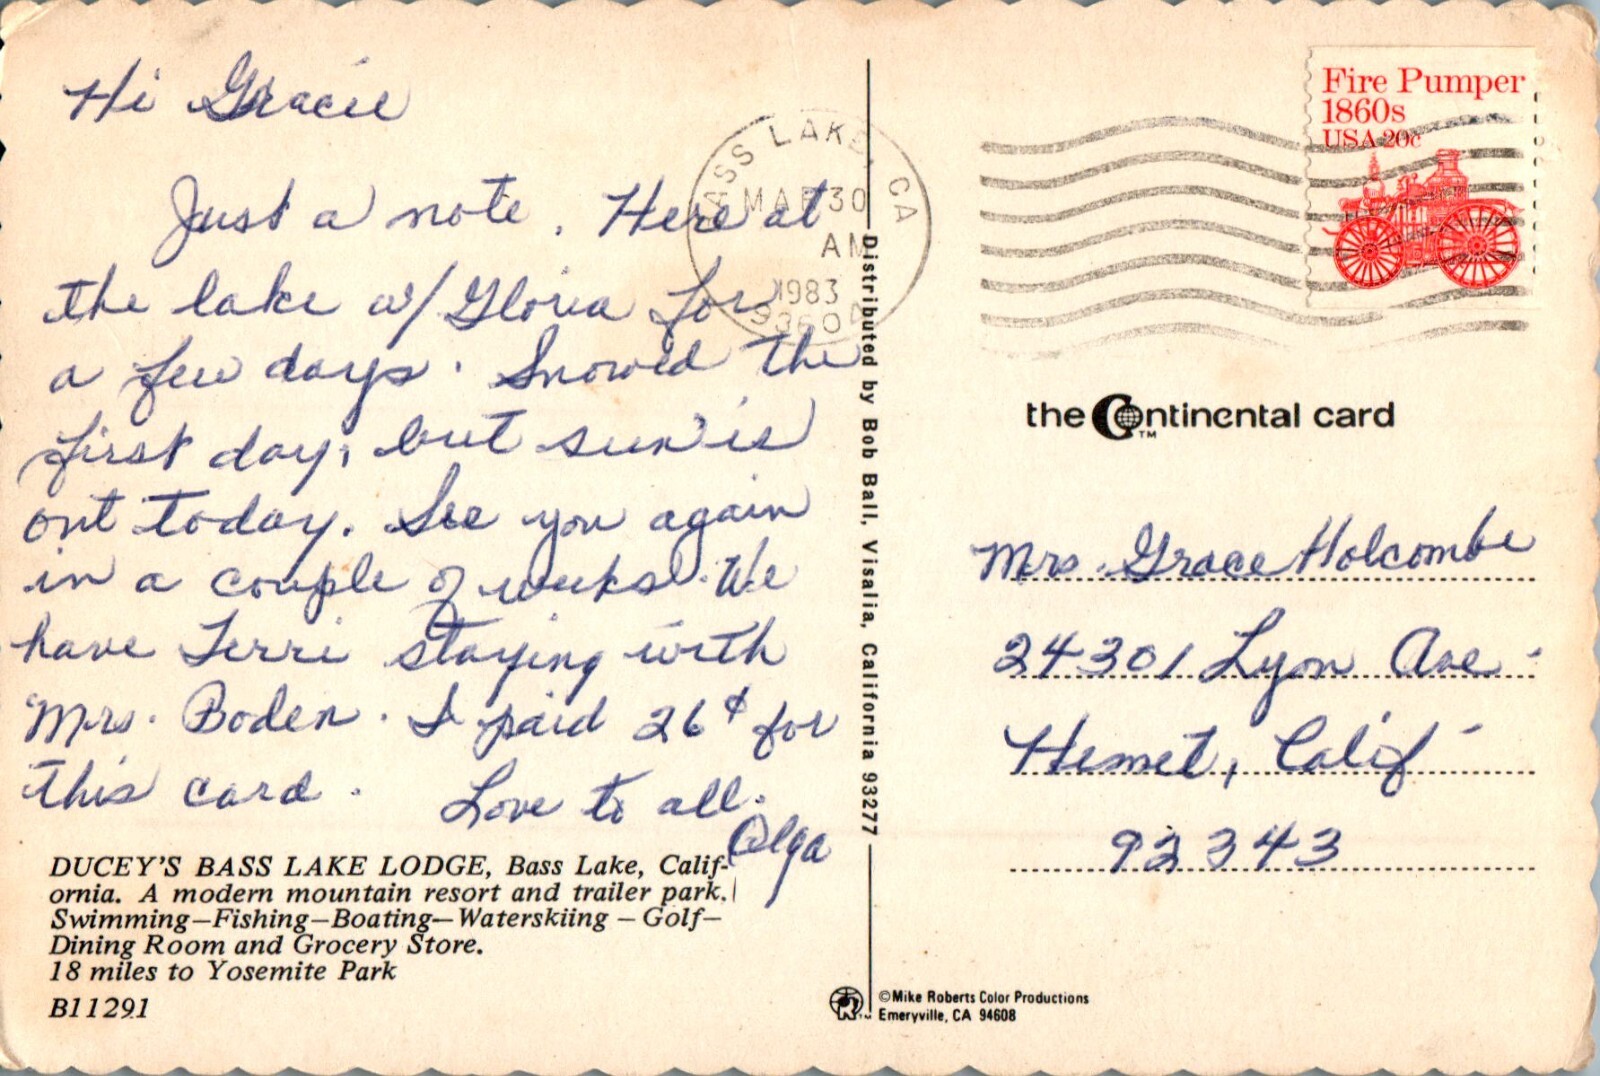 Hi Gracie
Just a note. Here at
the lake w/ Gloria for
a few days. Snowed the
first day, but sun is
out today. See you again
in a couple of weeks. We
have Terri staying with
Mrs. Boden. I paid 26¢ for
this card. Love to all.
Olga
DUCEY'S BASS LAKE LODGE, Bass Lake, Calif-
ornia. A modern mountain resort and trailer park.
Swimming—Fishing—Boating—Waterskiing — Golf—
Dining Room and Grocery Store.
18 miles to Yosemite Park
B11291
BASS LAKE, CA
MAR 30
AM
1983
93604
Distributed by Bob Ball, Visalia, California 93277
Fire Pumper
1860s
USA 20c
the Continental card
TM
Mrs. Grace Holcombe
24301 Lyon Ave.
Hemet, Calif
92343
©Mike Roberts Color Productions
Emeryville, CA 94608